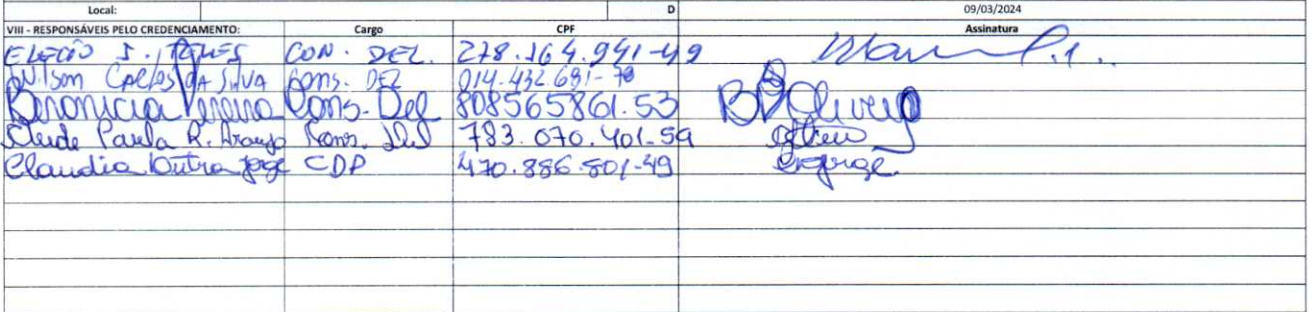 Local: D 09/03/2024
VIII - RESPONSÁVEIS PELO CREDENCIAMENTO: Cargo CPF Assinatura
CON. DEL. 278.164.941-49
Wilson Carlos da Silva Cons. DEL 014.432.691-78
Beronicia Pereira Cons. Del 808565861.53 B Oliveira
Cleide Paula R. Araujo Cons. Del 783.070.401-59
Claudia Dutra Jorge CDP 470.886.801-49 cojorge